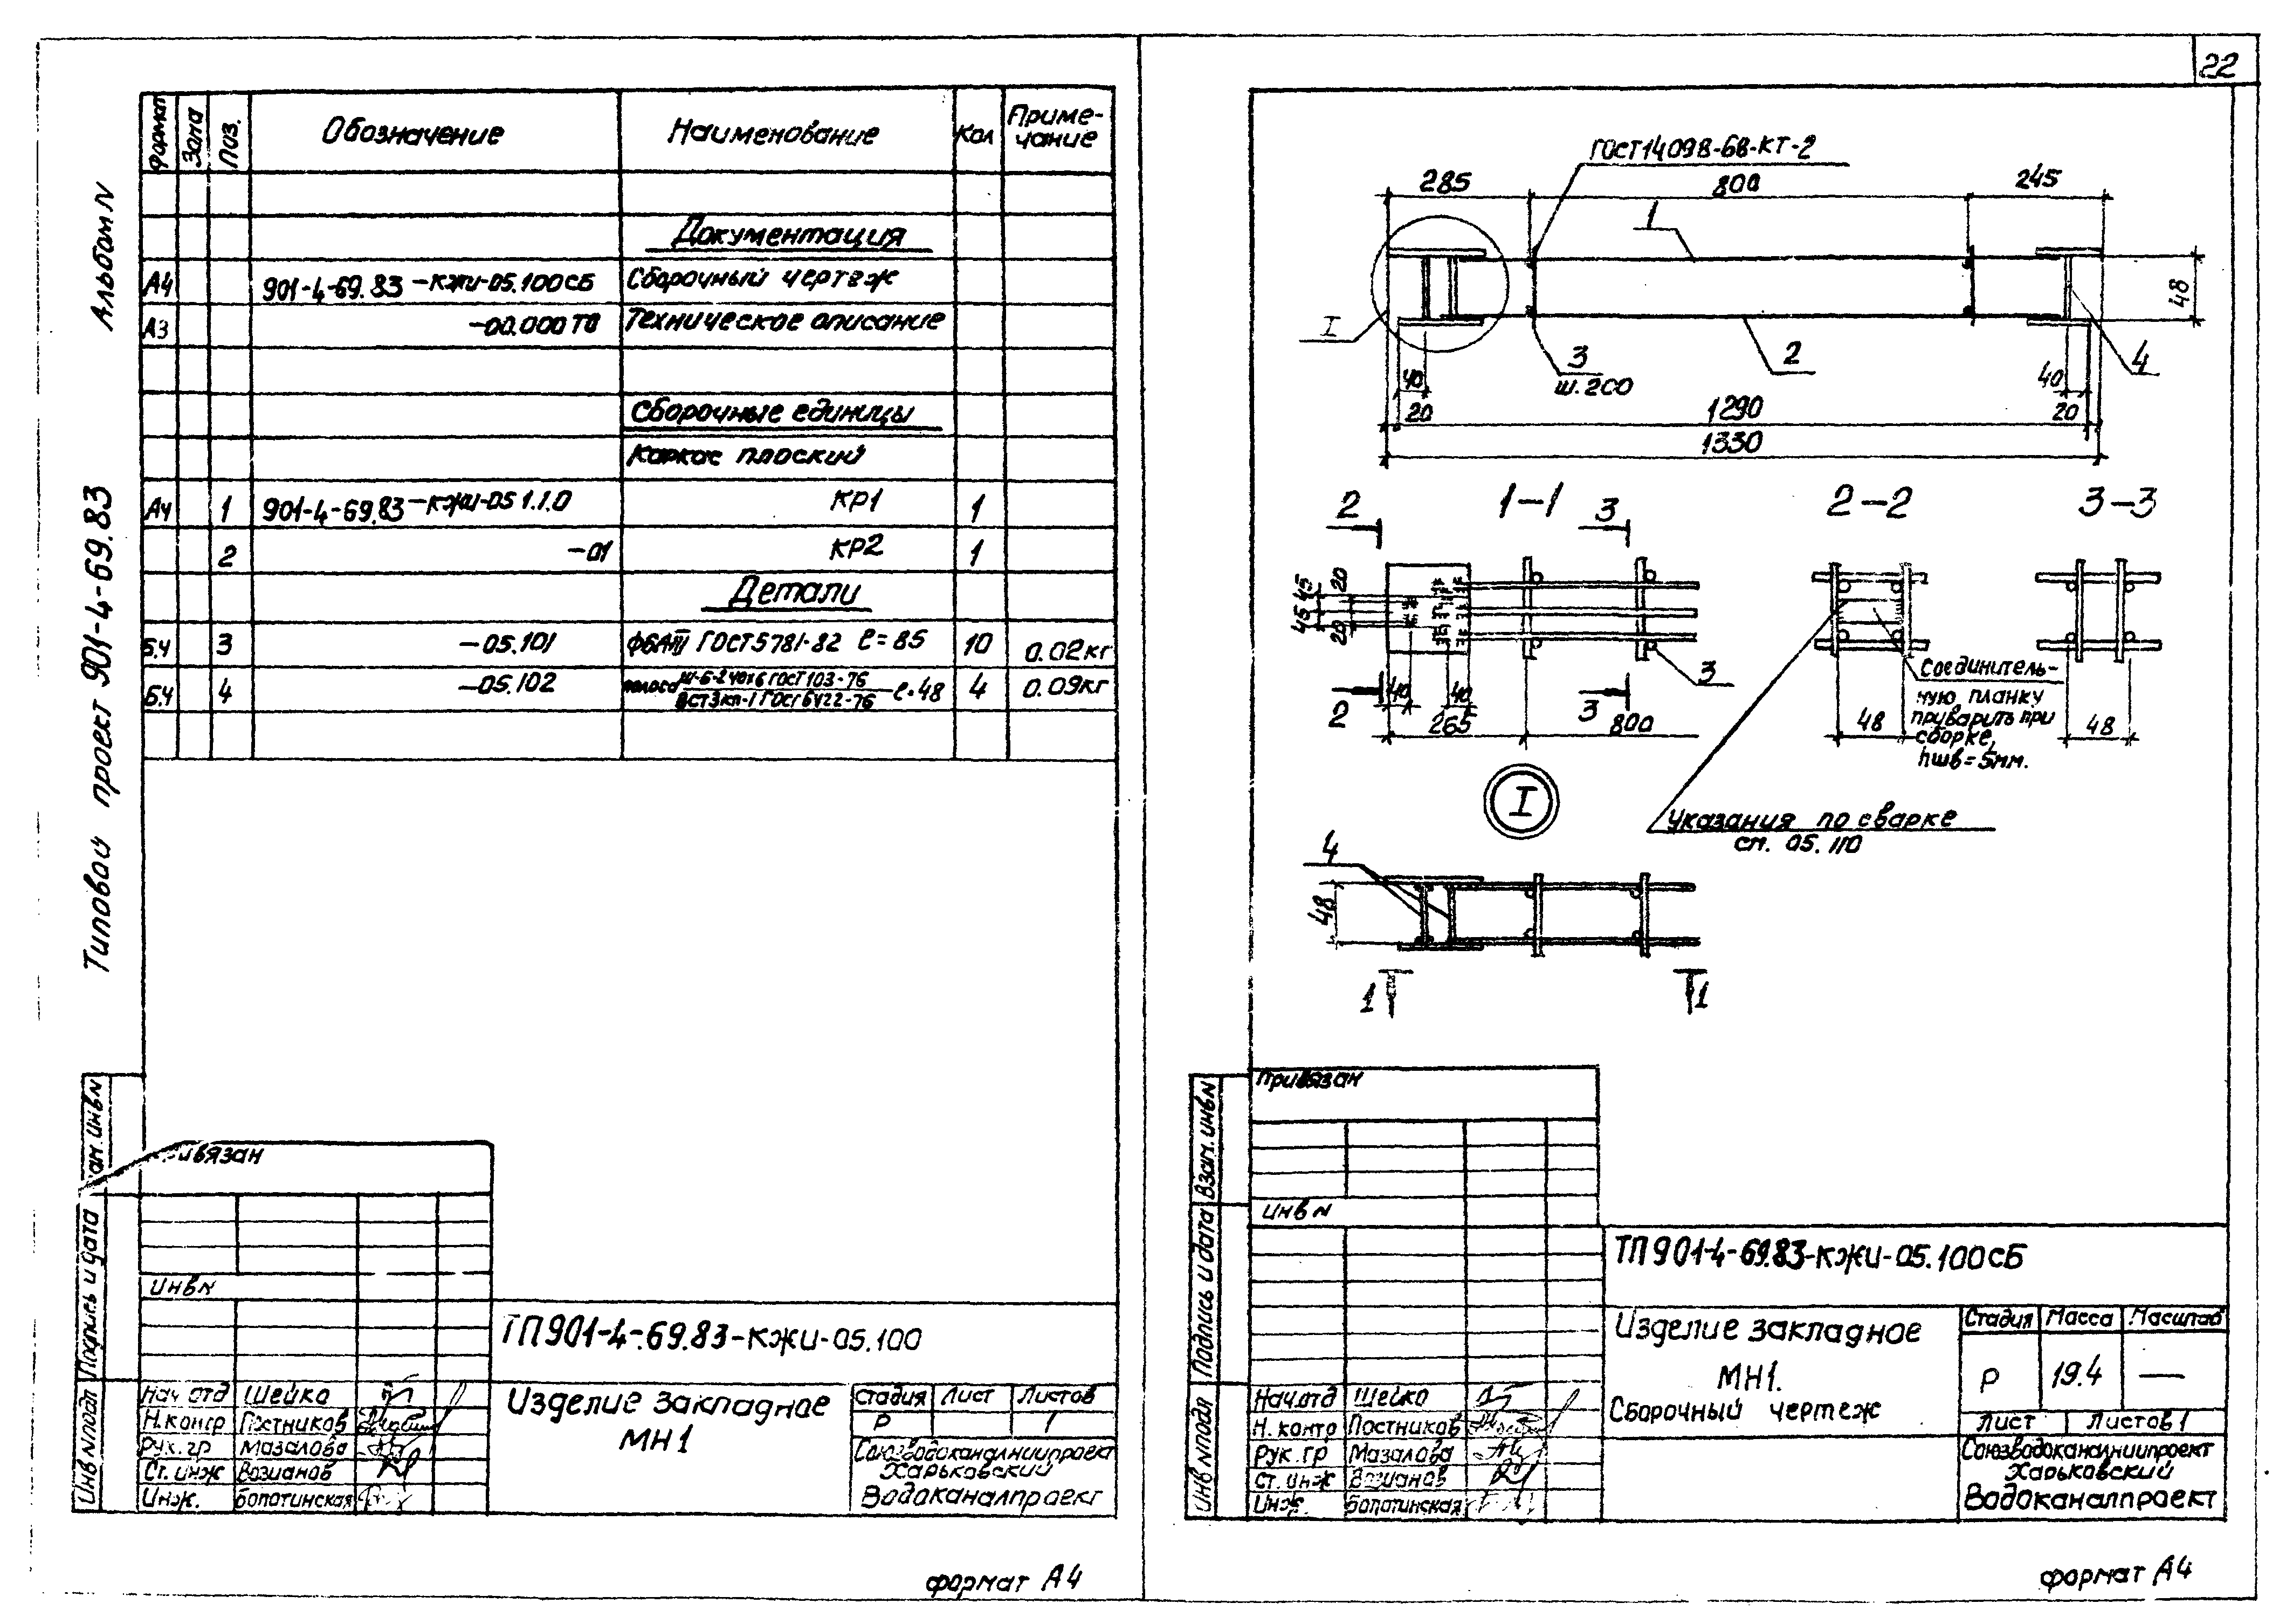 22
Альбом IV
Типовой проект 901-4-69.83
Формат Зона Поз. Обозначение Наименование Кол Приме-
чание
Документация
А4 901-4-69.83-КЖИ-05.100СБ Сборочный чертеж
А3 -00.000 ТО Техническое описание
Сборочные единицы
Каркас плоский
А4 1 901-4-69.83-КЖИ-05 1.1.0 КР1 1
2 -01 КР2 1
Детали
Б.Ч 3 -05.101 ф6АIII ГОСТ5781-82 ℓ=85 10 0.02кг
Б.Ч 4 -05.102 полоса 40х6 ГОСТ 103-76 ℓ=48 4 0.09кг
ВСт3кп-1 ГОСТ 6422-76
Взам. инв N
Подпись и дата
Инв N подл
Привязан
Инв N
ТП901-4-69.83-КЖИ-05.100
Нач отд Шейко
Н.контр Постников
Рук. гр Мазалова
Ст. инж Возианов
Инж. Болотинская
Изделие закладное
МН1
Стадия Лист Листов
Р 1
Союзводоканалниипроект
Харьковский
Водоканалпроект
формат А4
ГОСТ14098-68-КТ-2
285 800 245
1
I
48
3
ш.200
2
4
40 40
20 20
1290
1330
2 1-1 3 2-2 3-3
20
45
45
20
3
2 40 40 3
265 800
48 48
Соединитель-
ную планку
приварить при
сборке,
hшв=5мм.
I
Указания по сварке
см. 05.110
4
48
1 1
Привязан
Инв N
Взам. инв N
Подпись и дата
Инв N подл
ТП901-4-69.83-КЖИ-05.100СБ
Изделие закладное
МН1.
Сборочный чертеж
Стадия Масса Масштаб
Р 19.4 —
Лист Листов 1
Нач.отд Шейко
Н. контр Постников
Рук. гр Мазалова
Ст. инж Возианов
Инж. Болотинская
Союзводоканалниипроект
Харьковский
Водоканалпроект
формат А4